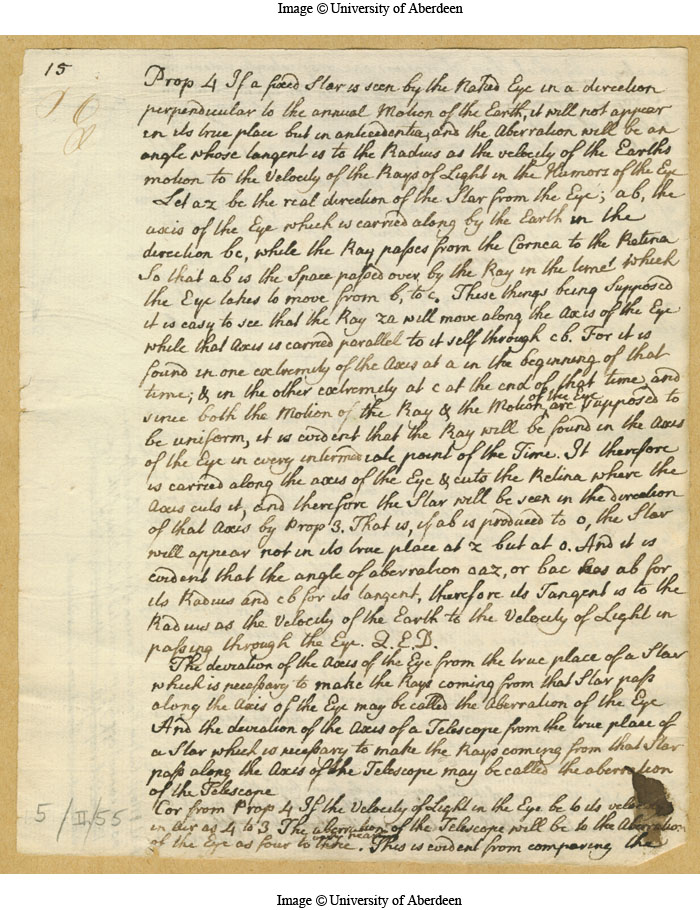 Image © University of Aberdeen
15
Prop 4 If a fixed Star is seen by the Naked Eye in a direction
perpendicular to the annual Motion of the Earth, it will not appear
in its true place but in antecedentia, and the Aberration will be an
angle whose tangent is to the Radius as the velocity of the Earths
motion to the Velocity of the Rays of Light in the Humors of the Eye
Let az be the real direction of the Star from the Eye; ab, the
axis of the Eye which is carried along by the Earth in the
direction bc, while the Ray passes from the Cornea to the Retina
So that ab is the Space passed over by the Ray in the time which
the Eye takes to move from b, to c. These things being Supposed
it is easy to see that the Ray za will move along the Axis of the Eye
while that Axis is carried parallel to it self through cb. For it is
found in one extremity of the Axis at a in the beginning of that
time; & in the other extremity at c at the end of that time, and
since both the Motion of the Ray & the Motion of the Eye are supposed to
be uniform, it is evident that the Ray will be found in the Axis
of the Eye in every intermediate point of the Time. It therefore
is carried along the axis of the Eye & cuts the Retina where the
Axis cuts it, and therefore the Star will be seen in the direction
of that Axis by Prop 3. That is, if ab is produced to o, the Star
will appear not in its true place at z but at o. And it is
evident that the angle of aberration oaz, or bac has ab for
its Radius and cb for its tangent, therefore its Tangent is to the
Radius as the Velocity of the Earth to the Velocity of Light in
passing through the Eye. Q.E.D.
The deviation of the Axis of the Eye from the true place of a Star
which is necessary to make the Rays coming from that Star pass
along the Axis of the Eye may be called the Aberration of the Eye
And the deviation of the Axis of a Telescope from the true place of
a Star which is necessary to make the Rays coming from that Star
pass along the Axis of the Telescope may be called the aberration
of the Telescope
Cor from Prop 4 If the Velocity of Light in the Eye be to its velocity
in Air as 4 to 3 The aberration of the Telescope will be to the Aberration
of the Eye as four to three very nearly. This is evident from comparing the
5/II/55
Image © University of Aberdeen